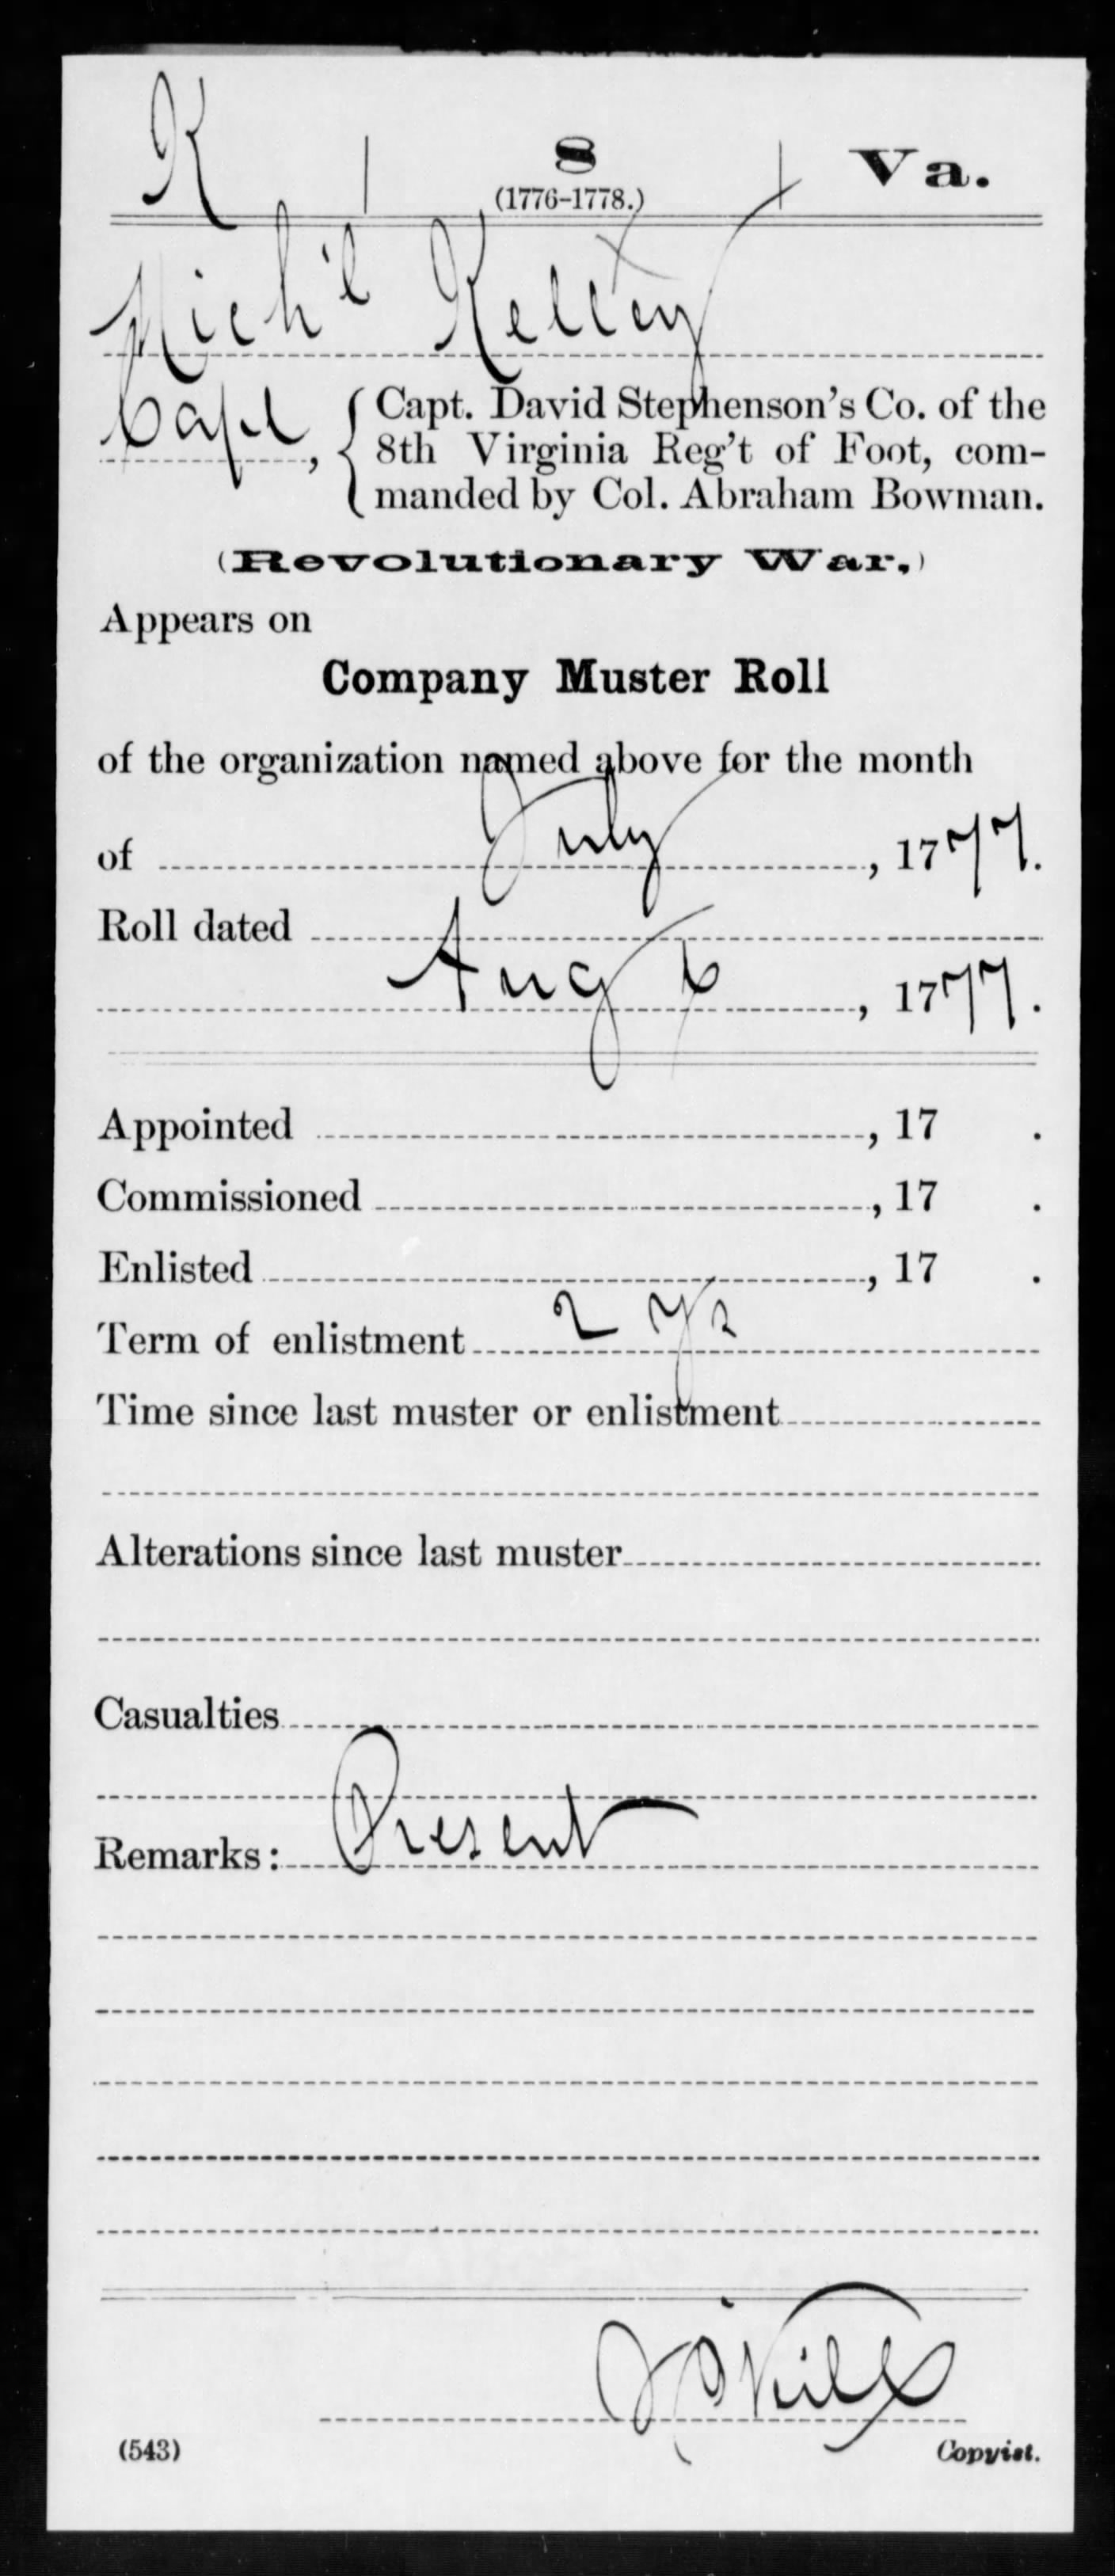 K | 8 | Va.
(1776-1778.)
Mich'l Kelley
Capt. David Stephenson's Co. of the
8th Virginia Reg't of Foot, com-
manded by Col. Abraham Bowman.
(Revolutionary War.)
Appears on
Company Muster Roll
of the organization named above for the month
of July, 1777.
Roll dated
Aug 6, 1777.
Appointed , 17 .
Commissioned , 17 .
Enlisted , 17 .
Term of enlistment 2 ys
Time since last muster or enlistment
Alterations since last muster
Casualties
Remarks: Present
(543) Copyist.